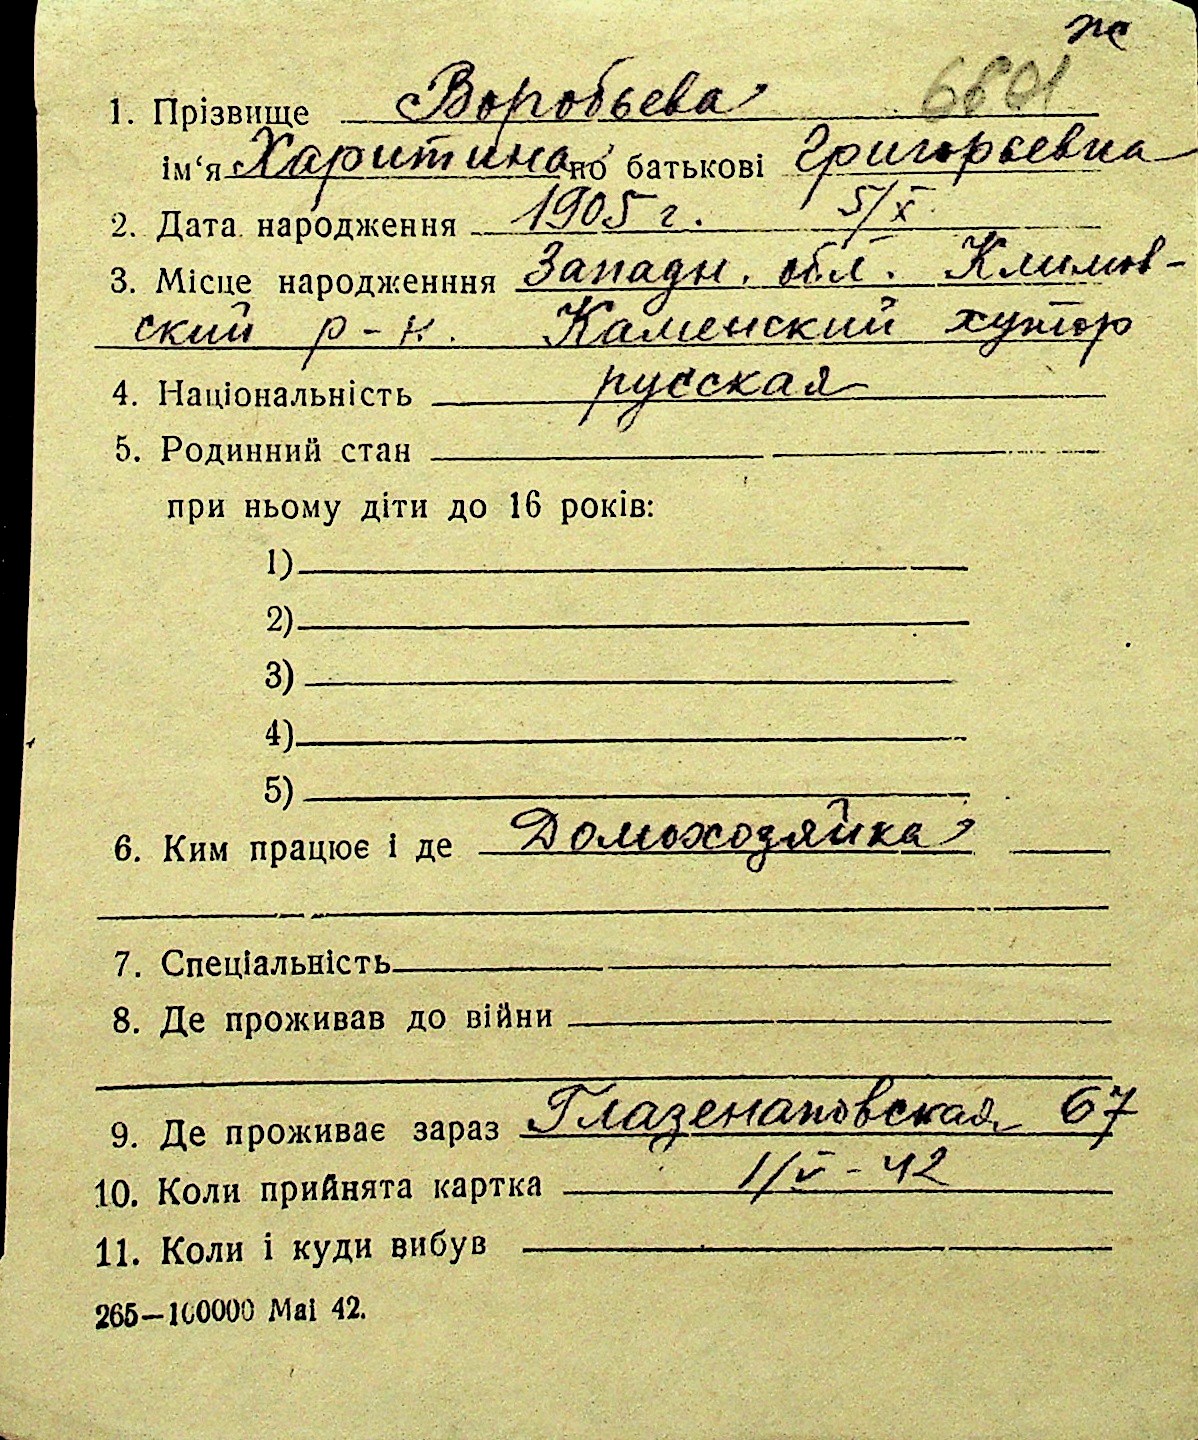 ж
6801
1. Прізвище Воробьева
ім‘я Харитина по батькові Григорьевна
2. Дата народження 1905 г. 5/X
3. Місце народженння Западн. обл. Климов-
ский р-н. Каменский хутор
4. Національність русская
5. Родинний стан
при ньому діти до 16 років:
1)
2)
3)
4)
5)
6. Ким працює і де Домохозяйка
7. Спеціальність
8. Де проживав до війни
9. Де проживає зараз Глазенаповская 67
10. Коли прийнята картка 1/V - 42
11. Коли і куди вибув
265—100000 Mai 42.